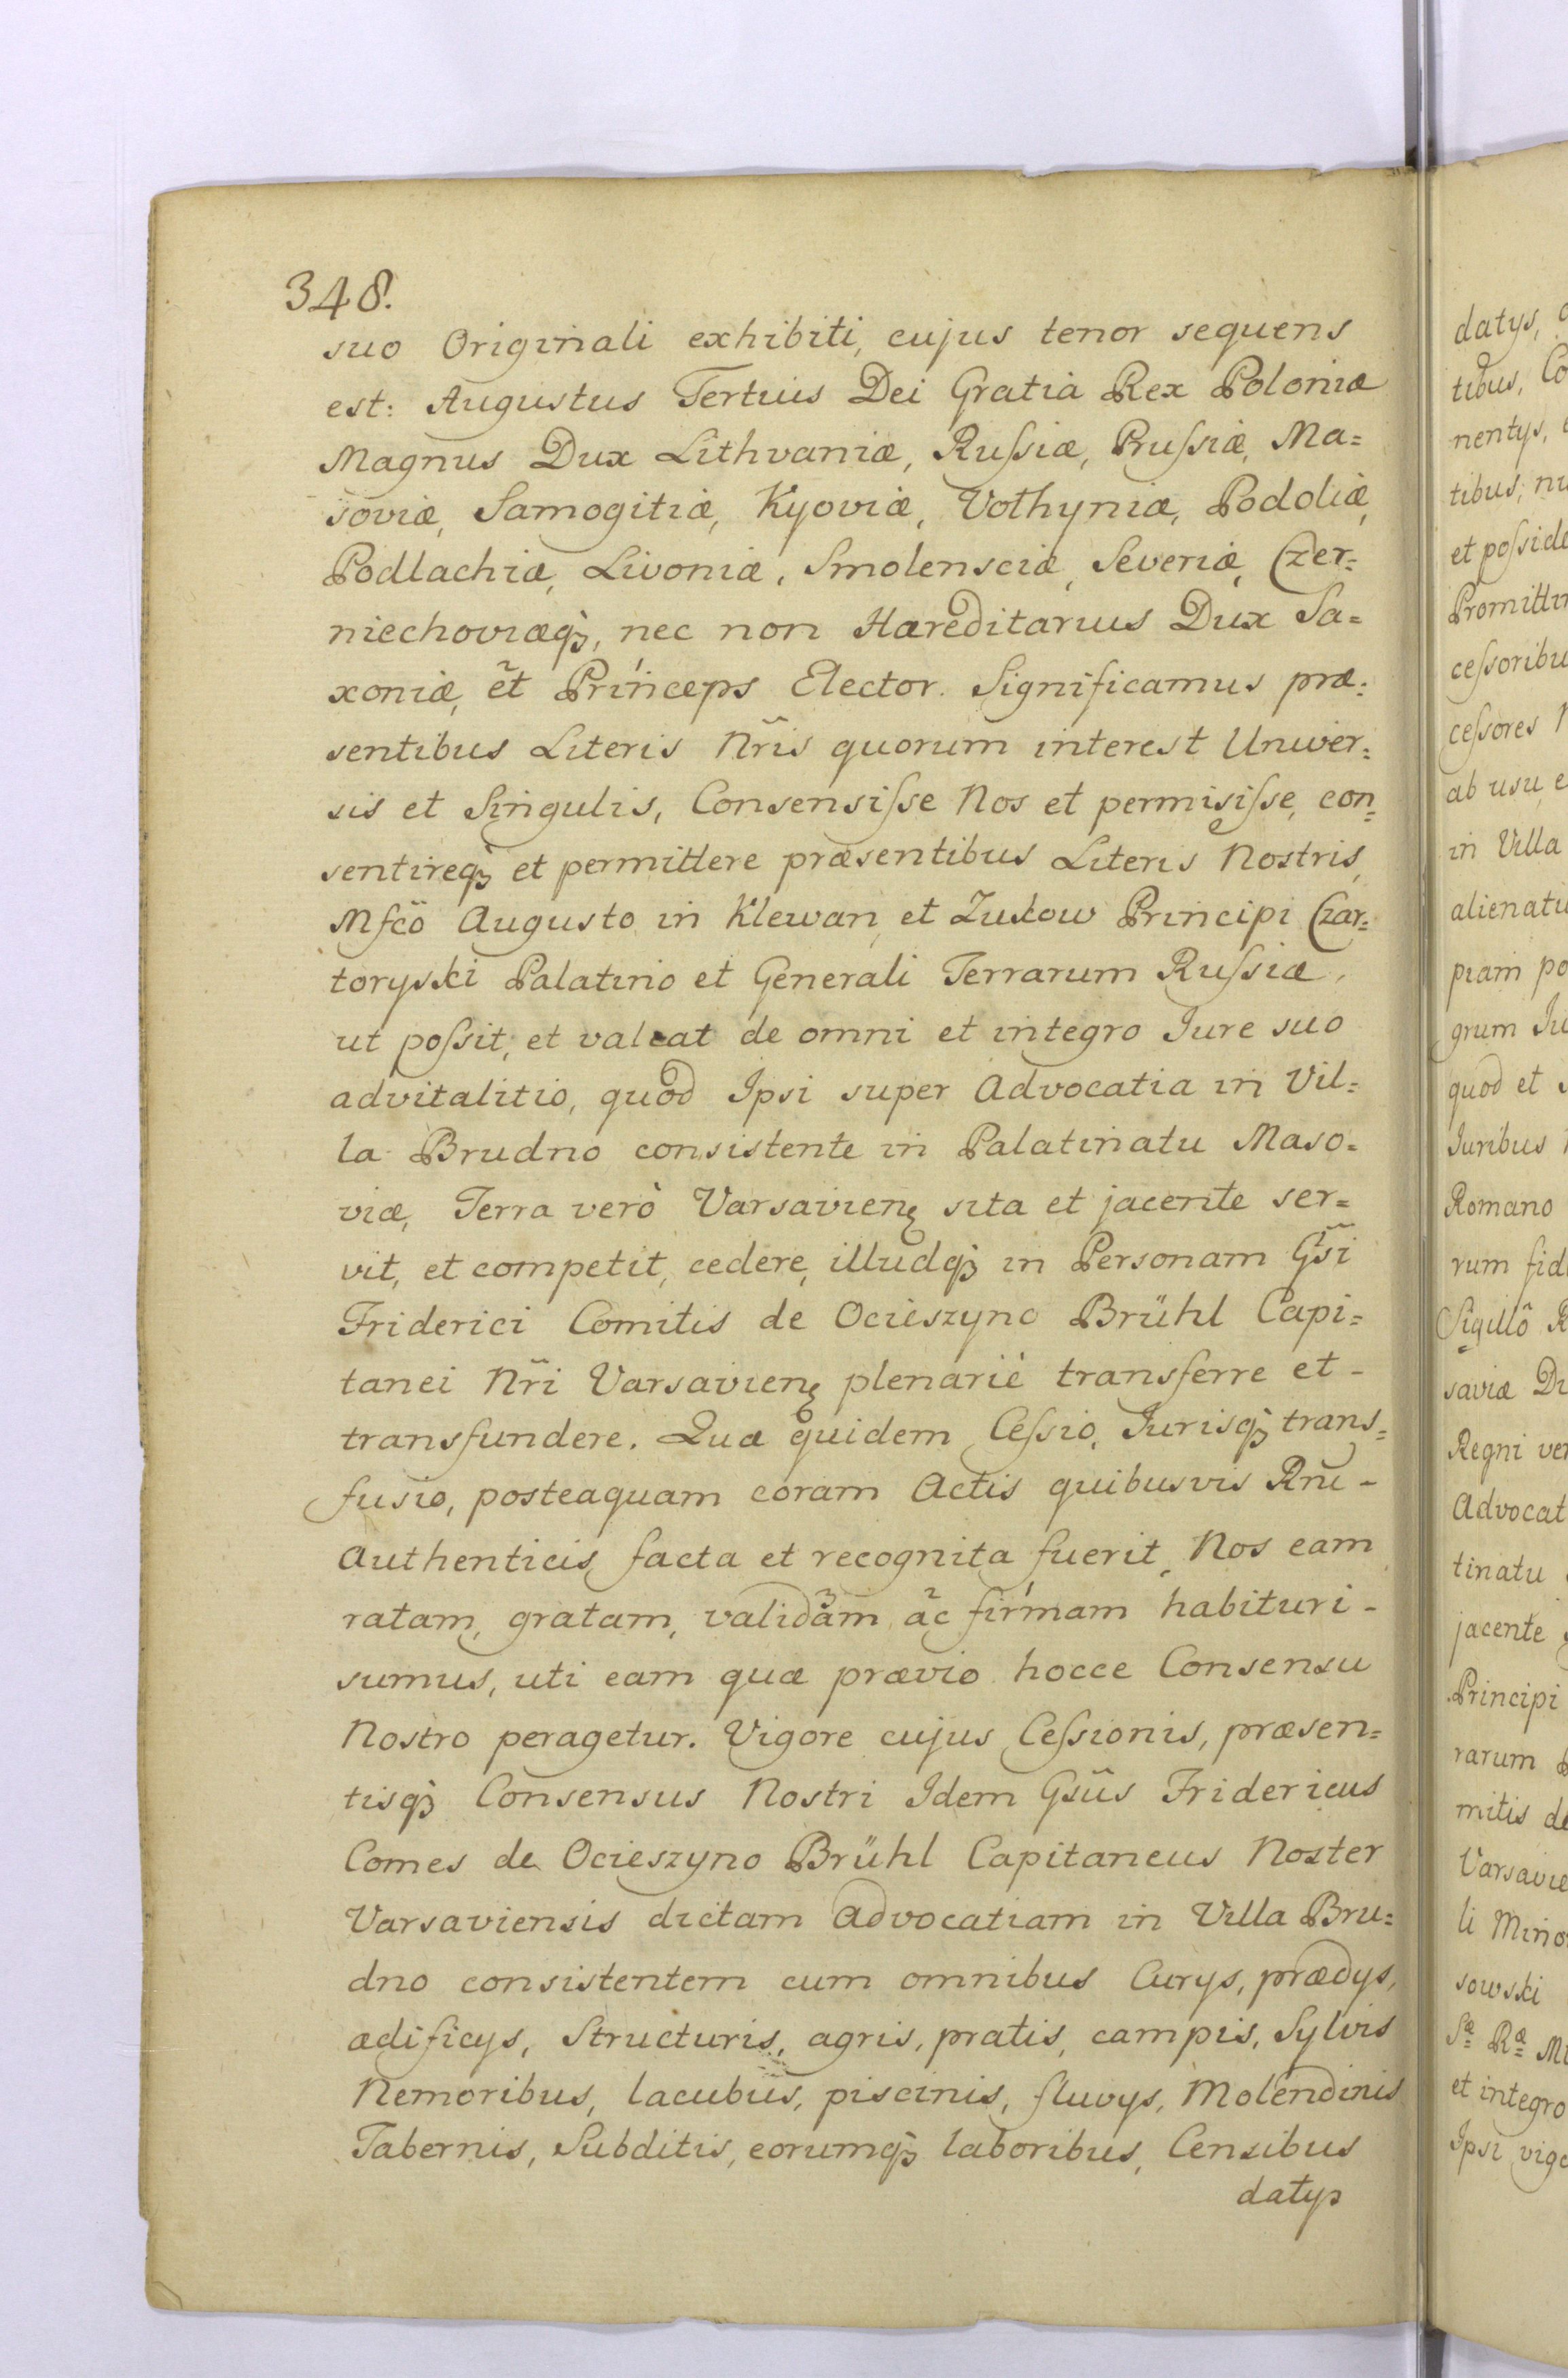 348.
suo Originali exhibiti, cujus tenor sequens
est: Augustus Tertius Dei Gratia Rex Poloniæ
Magnus Dux Lithvaniæ, Ruſsiæ, Pruſsiæ, Ma=
soviæ, Samogitiæ, Kyoviæ, Volhyniæ, Podoliæ,
Podlachiæ, Livoniæ, Smolensciæ, Severiæ, Czer=
niechoviæq̃, nec non Hæreditarius Dux Sa=
xoniæ, et Princeps Elector. Significamus præ=
sentibus Literis Nr̃is quorum interest Univer=
sis et Singulis, Consensiſse Nos et permisiſse, con=
sentireq̃ et permittere præsentibus Literis Nostris,
Mfcõ Augusto in Klewan et Zukow Principi Czar=
toryski Palatino et Generali Terrarum Ruſsiæ,
ut poſsit, et valeat de omni et integro Jure suo
advitalitio, quod Ipsi super Advocatia in Vil=
la Brudno consistente in Palatinatu Maso=
viæ, Terra verò Varsavieñ sita et jacente ser=
vit, et competit, cedere, illudq̃ in Personam Gs̃i
Friderici Comitis de Ocieszyno Brühl Capi=
tanei Nr̃i Varsavieñ plenariè transferre et -
transfundere. Quæ quidem Ceſsio, Jurisq̃ trans=
fusio, posteaquam coram Actis quibusvis Rñi -
Authenticis facta et recognita fuerit, Nos eam
ratam, gratam, validam, ac firmam habituri -
sumus, uti eam quæ prævio hocce Consensu
Nostro peragetur. Vigore cujus Ceſsionis, præsen=
tisq̃ Consensus Nostri Idem Gsũs Fridericus
Comes de Ocieszyno Brühl Capitaneus Noster
Varsaviensis dictam Advocatiam in Villa Bru=
dno consistentem cum omnibus Curys, prædys,
ædificys, Structuris, agris, pratis, campis, Sylvis
Nemoribus, lacubus, piscinis, fluvys, Molendinis
Tabernis, Subditis, eorumq̃ laboribus, Censibus
datys
datys,
tibus, Co
nentys,
tibus, nu
et poſside
Promittim
ceſsoribu
ceſsores N
ab usu e
in Villa
alienatu
piam po
grum Ju
quod et s
Juribus
Romano
rum fid
Sigillô R
saviæ Di
Regni ver
Advocat
tinatu
jacente
Principi
rarum
mitis de
Varsavie
li Mino
sowski
Sæ Ræ M
et integro
Ipsi vigo